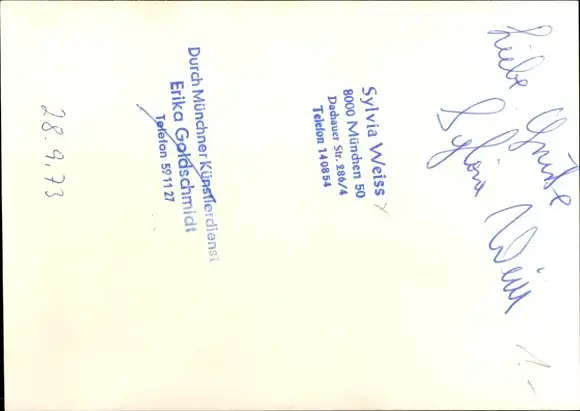 Liebe Grüße
Sylvia Weiss
1.-
Sylvia Weiss
8000 München 50
Dachauer Str. 286/4
Telefon 140854
Durch Münchner Künstlerdienst
Erika Goldschmidt
Telefon 591127
28.9.73